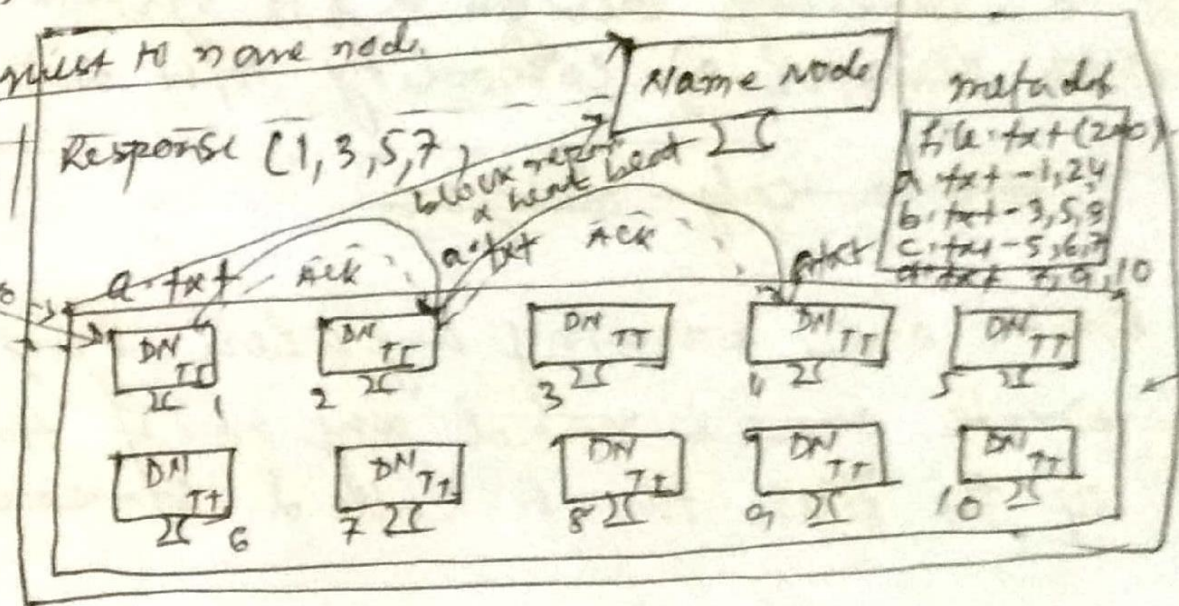 to name node
Name Node
metadat
Response (1, 3, 5, 7)
file.txt (200)
a.txt - 1, 2, 4
b.txt - 3, 5, 9
c.txt - 5, 6, 7
d.txt 7, 9, 10
block report
& heart beat
a.txt Ack a.txt Ack a.txt
DN TT 1
DN TT 2
DN TT 3
DN TT 4
DN TT 5
DN TT 6
DN TT 7
DN TT 8
DN TT 9
DN TT 10